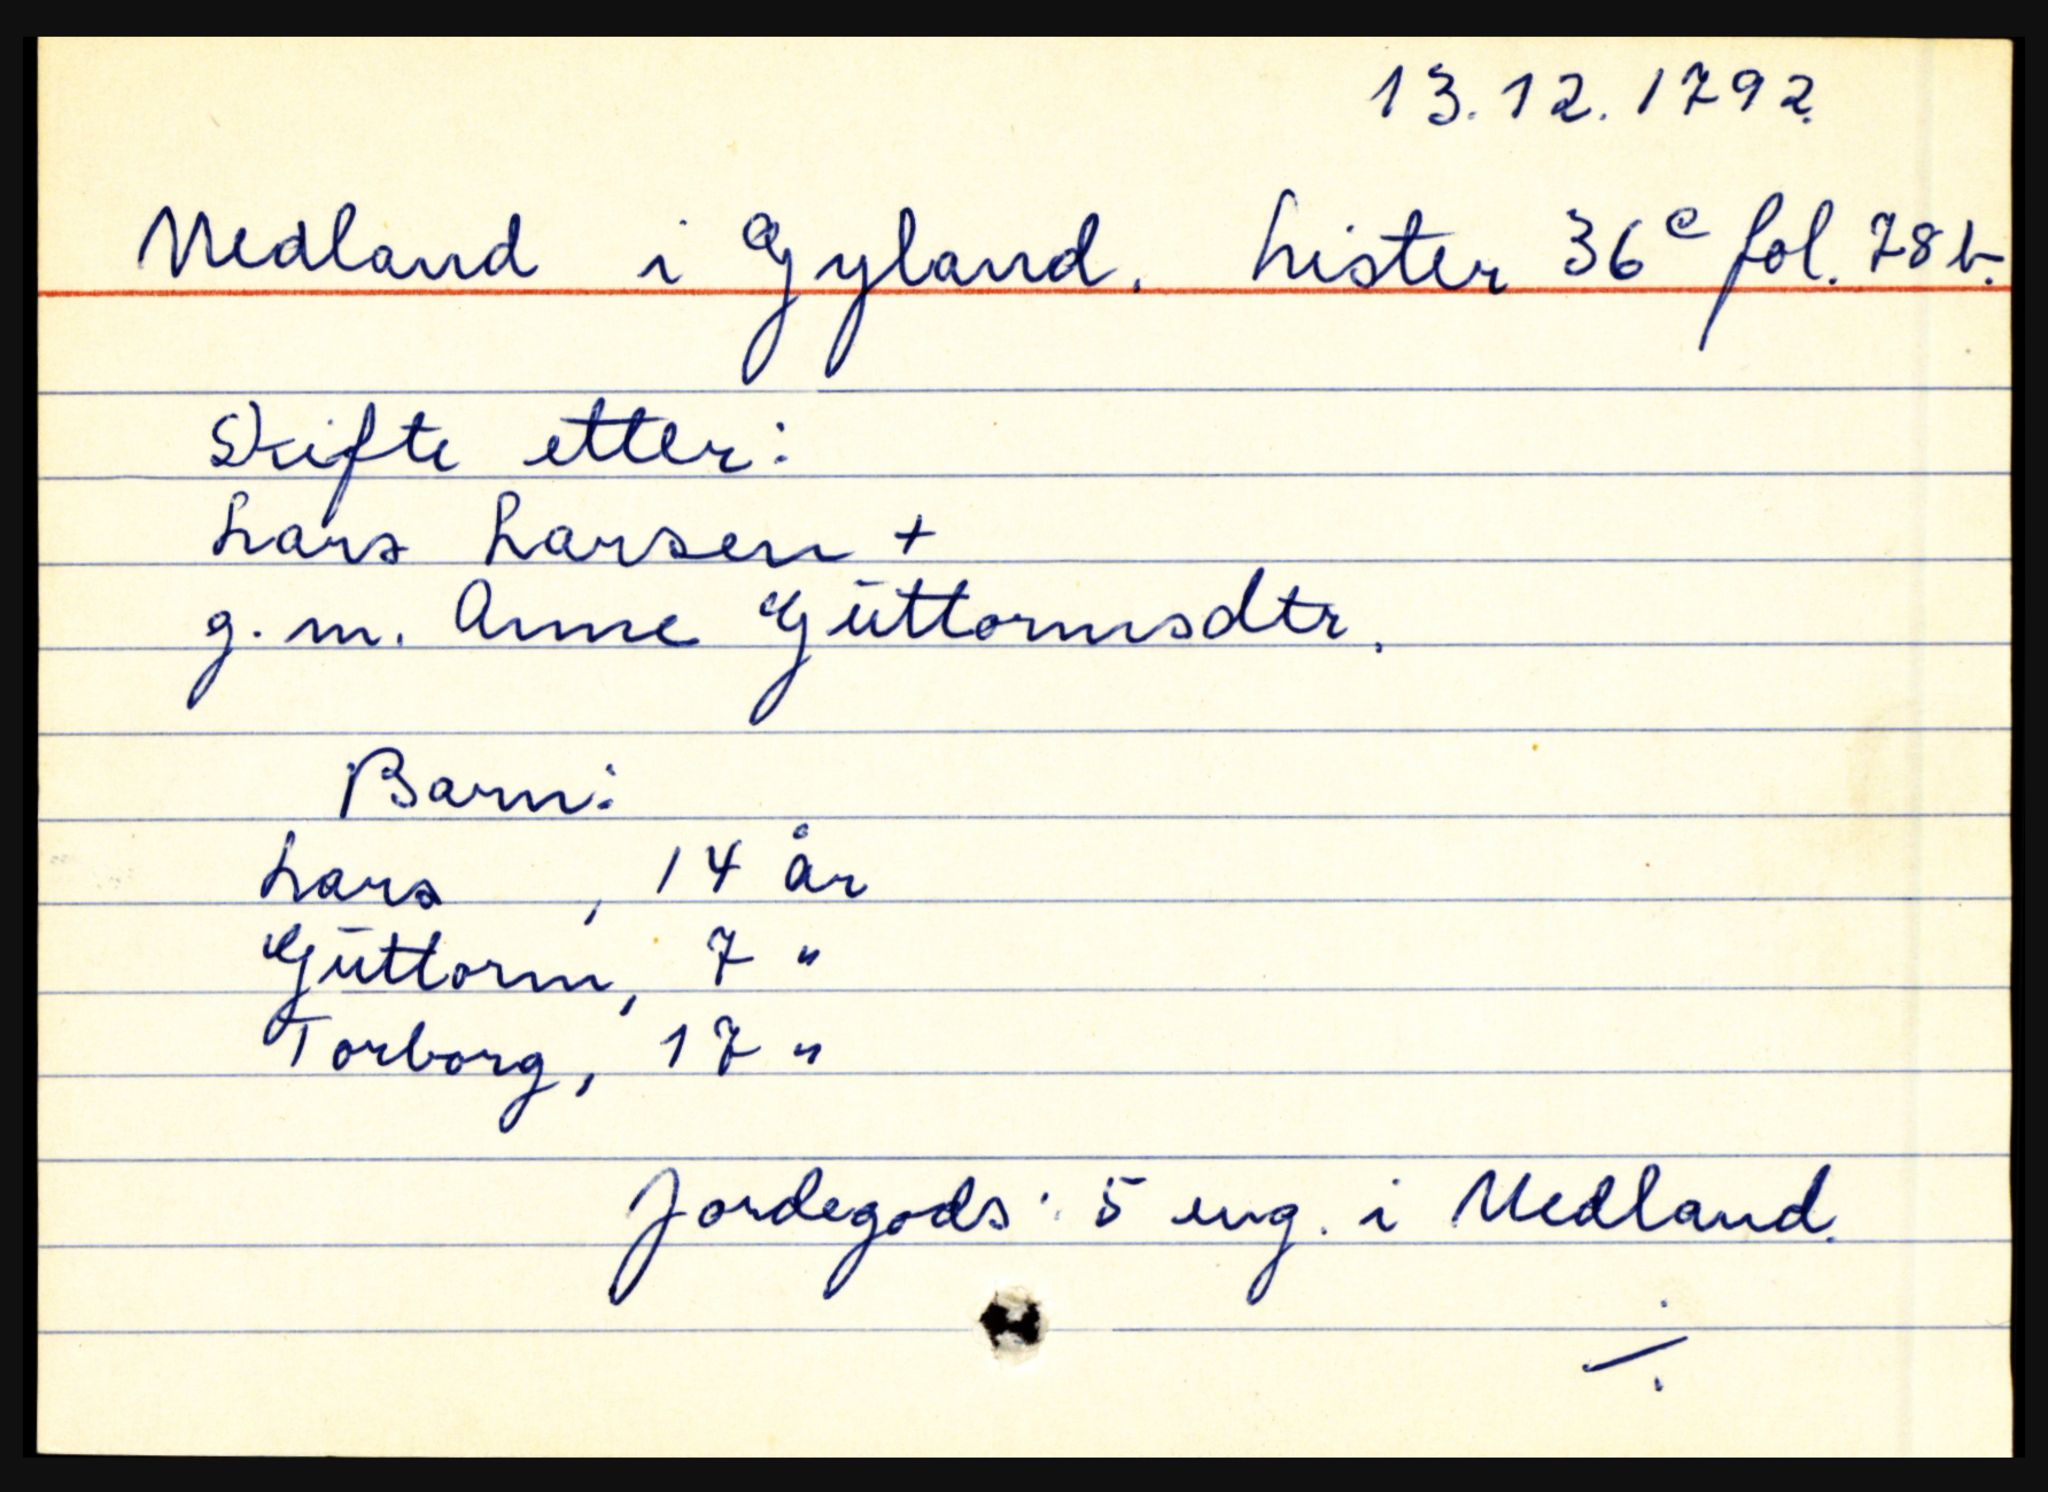 13.12.1792.
Nedland i Gyland. Lister 36c fol. 78b.
Skifte etter:
Lars Larsen +
g. m. Anne Güttormsdtr.
Barn:
Lars , 14 år
Güttorm, 7 "
Torborg, 17 "
Jordegods: 5 eng. i Nedland.